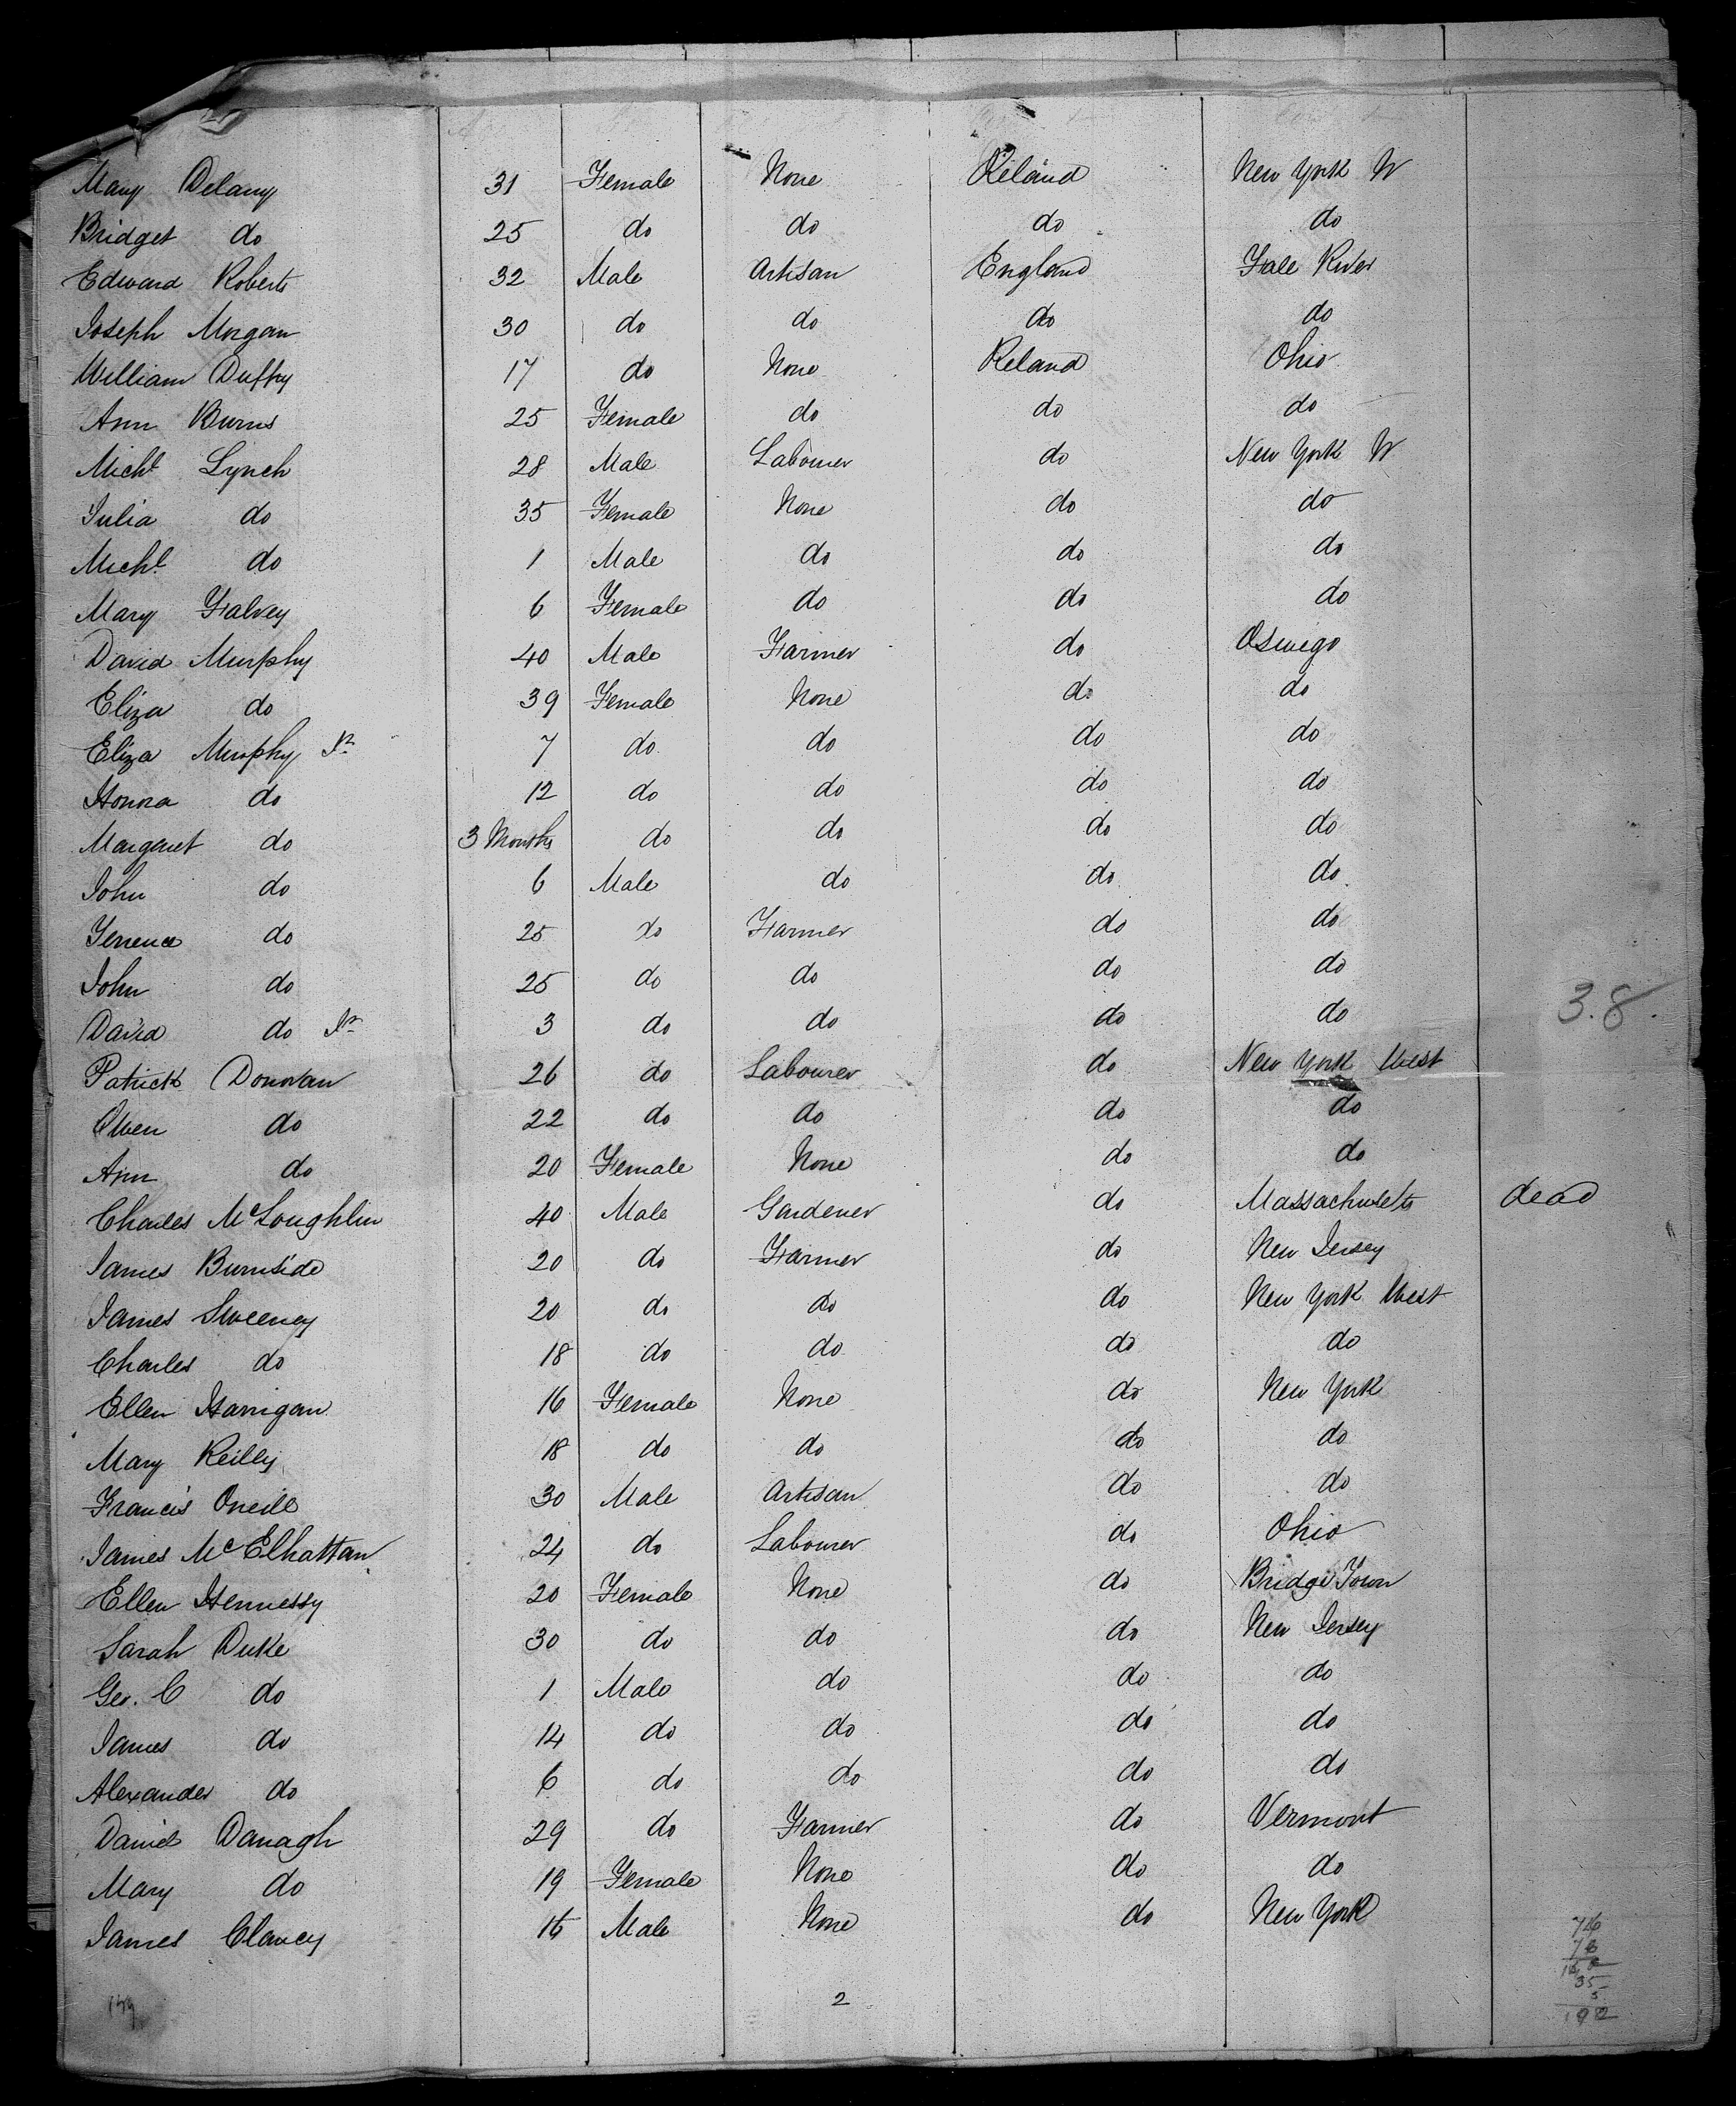 Mary Delany 31 Female None Ireland New York W
Bridget do 25 do do do do
Edward Roberts 32 Male Artisan England Fale River
Joseph Morgan 30 do do do do
William Duffy 17 do None Ireland Ohio
Ann Burns 25 Female do do do
Michl Lynch 28 Male Labourer do New York W
Julia do 35 Female None do do
Michl do 1 Male do do do
Mary Falvey 6 Female do do do
David Murphy 40 Male Farmer do Oswego
Eliza do 39 Female None do do
Eliza Murphy Jr 7 do do do do
Honora do 12 do do do do
Margaret do 3 Months do do do do
John do 6 Male do do do
Terrence do 25 do Farmer do do
John do 25 do do do do
David do Jr 3 do do do do
3.8.
Patrick Donovan 26 do Labourer do New York West
Owen do 22 do do do do
Ann do 20 Female None do do
Charles McLoughlin 40 Male Gardener do Massachusets dead
James Burnside 20 do Farmer do New Jersey
James Sweeney 20 do do do New York West
Charles do 18 do do do do
Ellen Harrigan 16 Female None do New York
Mary Reilly 18 do do do do
Francis Oneill 30 Male Artisan do do
James McElhattan 24 do Labourer do Ohio
Ellen Hennessy 20 Female None do Bridge Town
Sarah Duke 30 do do do New Jersey
Geo. C do 1 Male do do do
James do 14 do do do do
Alexander do 6 do do do do
Daniel Danagh 29 do Farmer do Vermont
Mary do 19 Female None do do
James Clancy Male None do New York
2
35
5